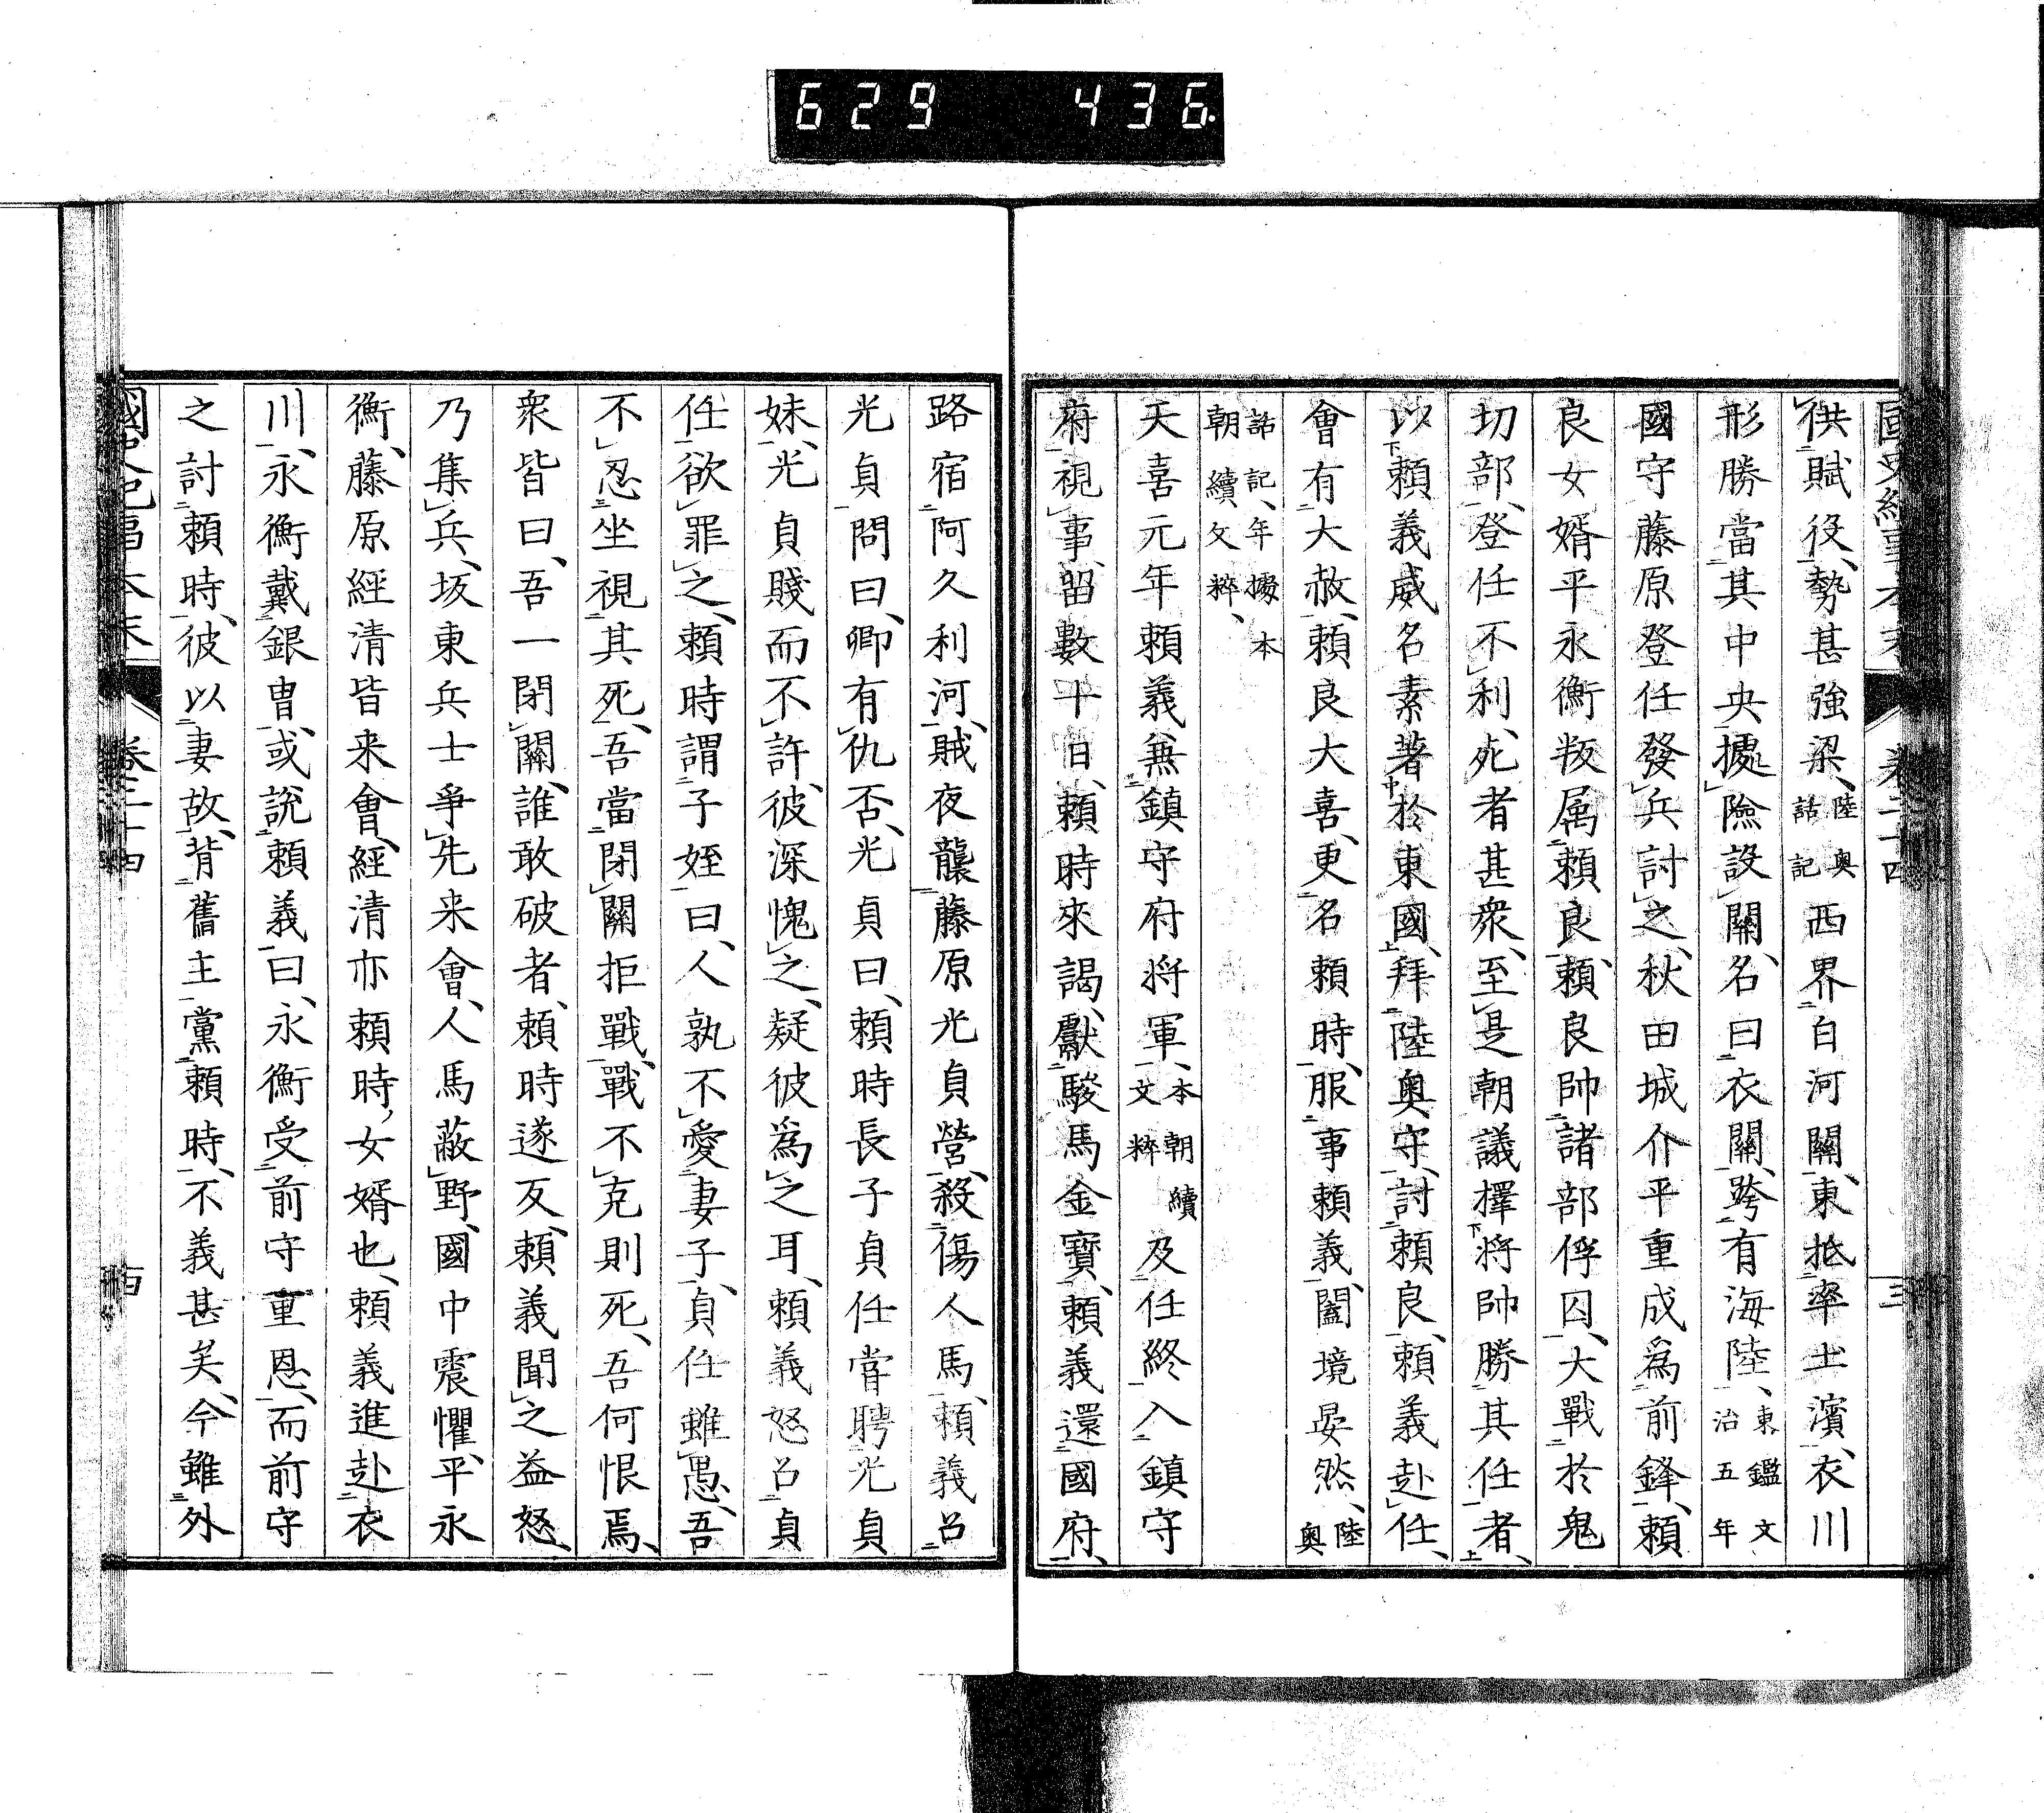 629 436
國史紀事本末 卷二十四 三
供賦役、勢甚強梁、陸奥話記西界白河關、東抵率土濱、衣川
形勝當其中央、據險設關、名曰衣關、跨有海陸、東鑑文治五年
國守藤原登任發兵討之、秋田城介平重成爲前鋒、賴
良女婿平永衡叛属賴良、賴良帥諸部俘囚、大戰於鬼
切部、登任不利、死者甚衆、至是朝議擇將帥勝其任者、
以賴義威名素著於東國、拜陸奥守、討賴良、賴義赴任、
會有大赦、賴良大喜、更名賴時、服事賴義、闔境晏然、陸奥
話記、年據本朝續文粹、
天喜元年賴義兼鎮守府將軍、本朝續文粹及任終入鎮守
府視事、留數十日、賴時來謁、獻駿馬金寶、賴義還國府、
路宿阿久利河、賊夜襲藤原光貞營、殺傷人馬、賴義召
光貞問曰、卿有仇否、光貞曰、賴時長子貞任嘗聘光貞
妹、光貞賤而不許、彼深愧之、疑彼爲之耳、賴義怒召貞
任欲罪之、賴時謂子姪曰、人孰不愛妻子、貞任雖愚、吾
不忍坐視其死、吾當閉關拒戰、戰不克則死、吾何恨焉、
衆皆曰、吾一閉關、誰敢破者、賴時遂反、賴義聞之益怒、
乃集兵、坂東兵士爭先來會、人馬蔽野、國中震懼、平永
衡、藤原經清皆来會、經清亦賴時女婿也、賴義進赴衣
川、永衡戴銀冑、或説賴義曰、永衡受前守重恩、而前守
之討賴時、彼以妻故、背舊主黨賴時、不義甚矣、今雖外
國史紀事本末 卷二十四 四